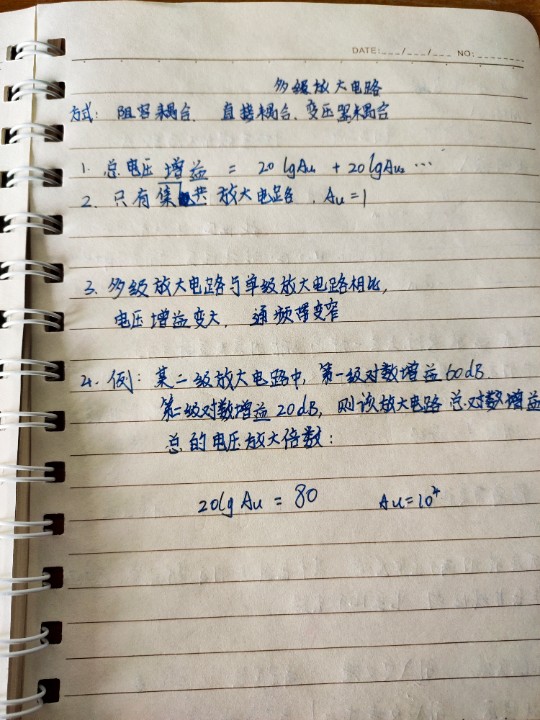 DATE:___/___/___ NO:________
多级放大电路
方式: 阻容耦合、 直接耦合、变压器耦合
1. 总电压增益 = 20 lgAu₁ + 20 lgAu₂ ...
2. 只有集共放大电路 . Au=1
3. 多级放大电路与单级放大电路相比,
电压增益变大, 通频带变窄
4. 例: 某二级放大电路中, 第一级对数增益 60dB
第二级对数增益 20dB, 则该放大电路总对数增益
总的电压放大倍数:
20lg Au = 80 Au=10⁴